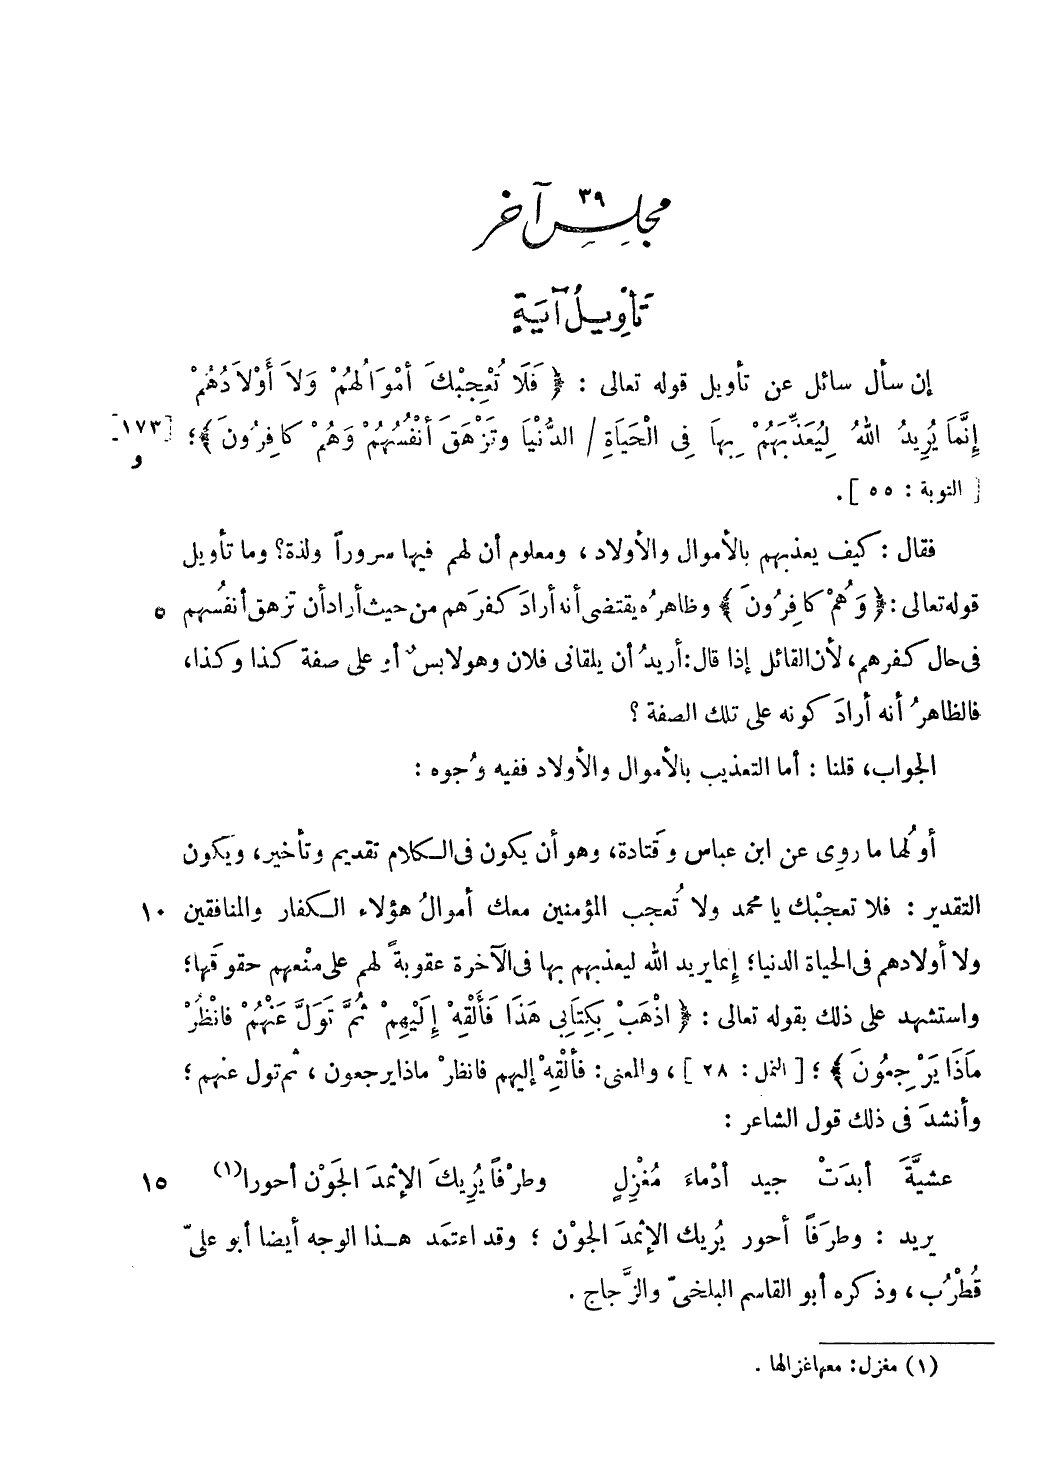 مجلس آخر
٣٩
تأويل آية
إن سأل سائل عن تأويل قوله تعالى : ﴿ فَلَا تُعْجِبْكَ أَمْوَالُهُمْ وَلَا أَوْلَادُهُمْ
إِنَّمَا يُرِيدُ اللهُ لِيُعَذِّبَهُمْ بِهَا فِى الْحَيَاةِ / الدُّنْيَا وَتَزْهَقَ أَنْفُسُهُمْ وَهُمْ كَافِرُونَ ﴾؛ [١٧٣-
و
[ التوبة : ٥٥ ] .
فقال : كيف يعذبهم بالأموال والأولاد ، ومعلوم أن لهم فيها سروراً ولذة؟ وما تأويل
قوله تعالى :﴿ وَهُمْ كَافِرُونَ ﴾ وظاهرُه يقتضى أنه أرادَ كفرَهم من حيث أراد أن تزهق أنفُسهم ٥
فى حال كفرهم، لأن القائل إذا قال: أريدُ أن يلقانى فلان وهو لابسٌ أو على صفة كذا وكذا،
فالظاهرُ أنه أرادَ كونه على تلك الصفة ؟
الجواب، قلنا : أما التعذيب بالأموال والأولاد ففيه وُجوه :
أوَّلها ما روى عن ابن عباس وقَتادة، وهو أن يكون فى الكلام تقديم وتأخير، ويكون
التقدير : فلا تعجبْك يا محمد ولا تُعجب المؤمنين معك أموالُ هؤلاء الكفار والمنافقين ١٠
ولا أولادهم فى الحياة الدنيا؛ إنما يريد الله ليعذبهم بها فى الآخرة عقوبةً لهم على منْعهم حقوقَها؛
واستشهد على ذلك بقوله تعالى : ﴿ اذْهَبْ بِكِتَابِى هَذَا فَأَلْقِهْ إِلَيْهِمْ ثُمَّ تَوَلَّ عَنْهُمْ فَانْظُرْ
مَاذَا يَرْجِعُونَ ﴾ ؛ [ النمل : ٢٨ ] ، والمعنى: فألْقِهْ إليهم فانظرْ ماذا يرجعون ، ثم تول عنهم ؛
وأنشدَ فى ذلك قول الشاعر :
عشيَّةَ أبدَتْ جيد أدْماءَ مُغْزِلٍ وطرْفاً يُرِيكَ الإثمدَ الجَوْن أحورا(١) ١٥
يريد : وطرَفاً أحور يُريك الإثمدَ الجوْن ؛ وقد اعتمَد هذا الوجه أيضا أبو علىّ
قُطْرُب ، وذكره أبو القاسم البلخىّ والزَّجاج .
(١) مغزل: معها غزالها .